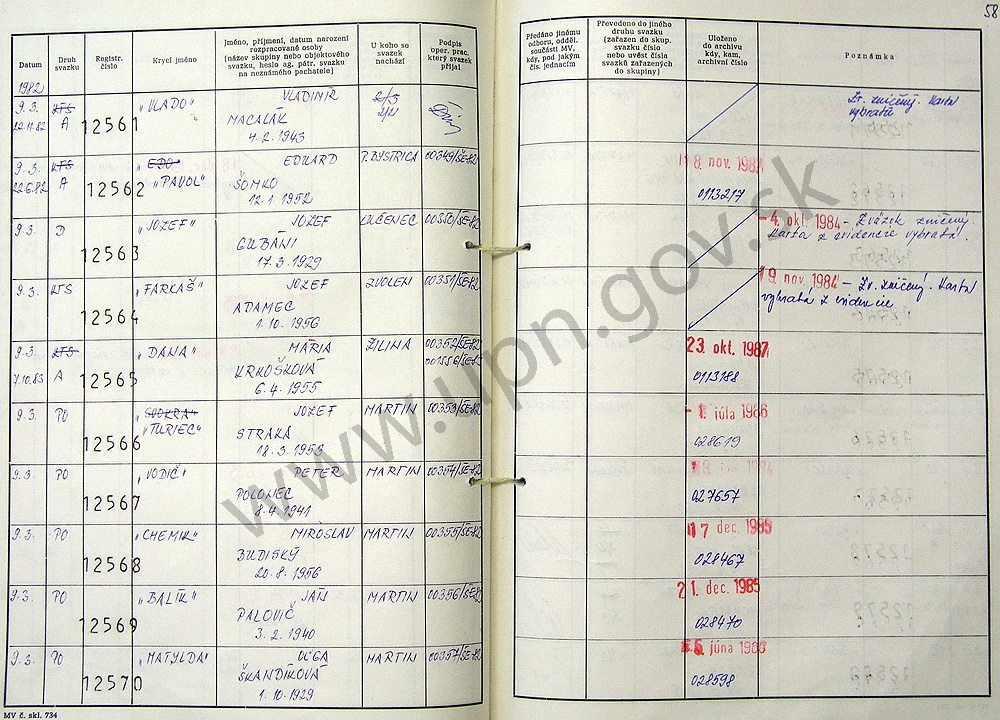 58
Datum
Druh
svazku
Registr.
číslo
Krycí jméno
Jméno, příjmení, datum narození
rozpracované osoby
(název skupiny nebo objektového
svazku, heslo ag. pátr. svazku
na neznámého pachatele)
U koho se
svazek
nachází
Podpis
oper. prac.
který svazek
přijal
Předáno jinému
odboru, odděl.
součásti MV,
kdy, pod jakým
čís. jednacím
Převedeno do jiného
druhu svazku
(zařazen do skup.
svazku číslo
nebo uvést čísla
svazků zařazených
do skupiny)
Uloženo
do archivu
kdy, kam,
archivní číslo
Poznámka
1982
9.3. KTS "VLADO" VLADIMÍR
22.11.82 A 12561 MACALÁK
4.2.1943
Zv. zničený. Karta
vybratá
9.3. KTS "EDO" EDUARD P. BYSTRICA 00349/ŠE-82 8. nov. 1983
22.6.82 A 12562 "PAVOL" ŠOMKO
12.1.1952 0113217
9.3. D "JOZEF" JOZEF LUČENEC 00350/ŠE-82 -4. okt. 1984 - Zväzok zničený.
12563 GUBÁNI Karta z evidencie vybratá.
17.3.1929
9.3. KTS "FARKAŠ" JOZEF ZVOLEN 00351/ŠE-82 19 nov. 1984 - Zv. zničený. Karta
12564 ADAMEC vybratá z evidencie
1.10.1956
9.3. KTS "DANA" MÁRIA ŽILINA 00352/ŠE-82 23. okt. 1987
7.10.85 A 12565 KRKOŠKOVÁ
6.4.1955 0113188
9.3. PO JOZEF MARTIN 00353/ŠE-82 - 1. júla 1986
12566 "TURIEC" STRAKA
18.3.1953 028619
9.3. PO "VODIČ" PETER MARTIN 00354/ŠE-82
12567 POLONEC
8.4.1941 027657
9.3. PO "CHEMIK" MIROSLAV MARTIN 00355/ŠE-82 17 dec. 1985
12568 BUDISKÝ
20.8.1956 028467
9.3. PO "BALÍK" JÁN MARTIN 00356/ŠE-82 21. dec. 1985
12569 PALOVIČ
3.2.1940 028470
9.3. PO "MATYLDA" OĽGA MARTIN 00357/ŠE-82 júna 1986
12570 ŠKANDÍKOVÁ
1.10.1929 028598
MV č. skl. 734
www.upn.gov.sk